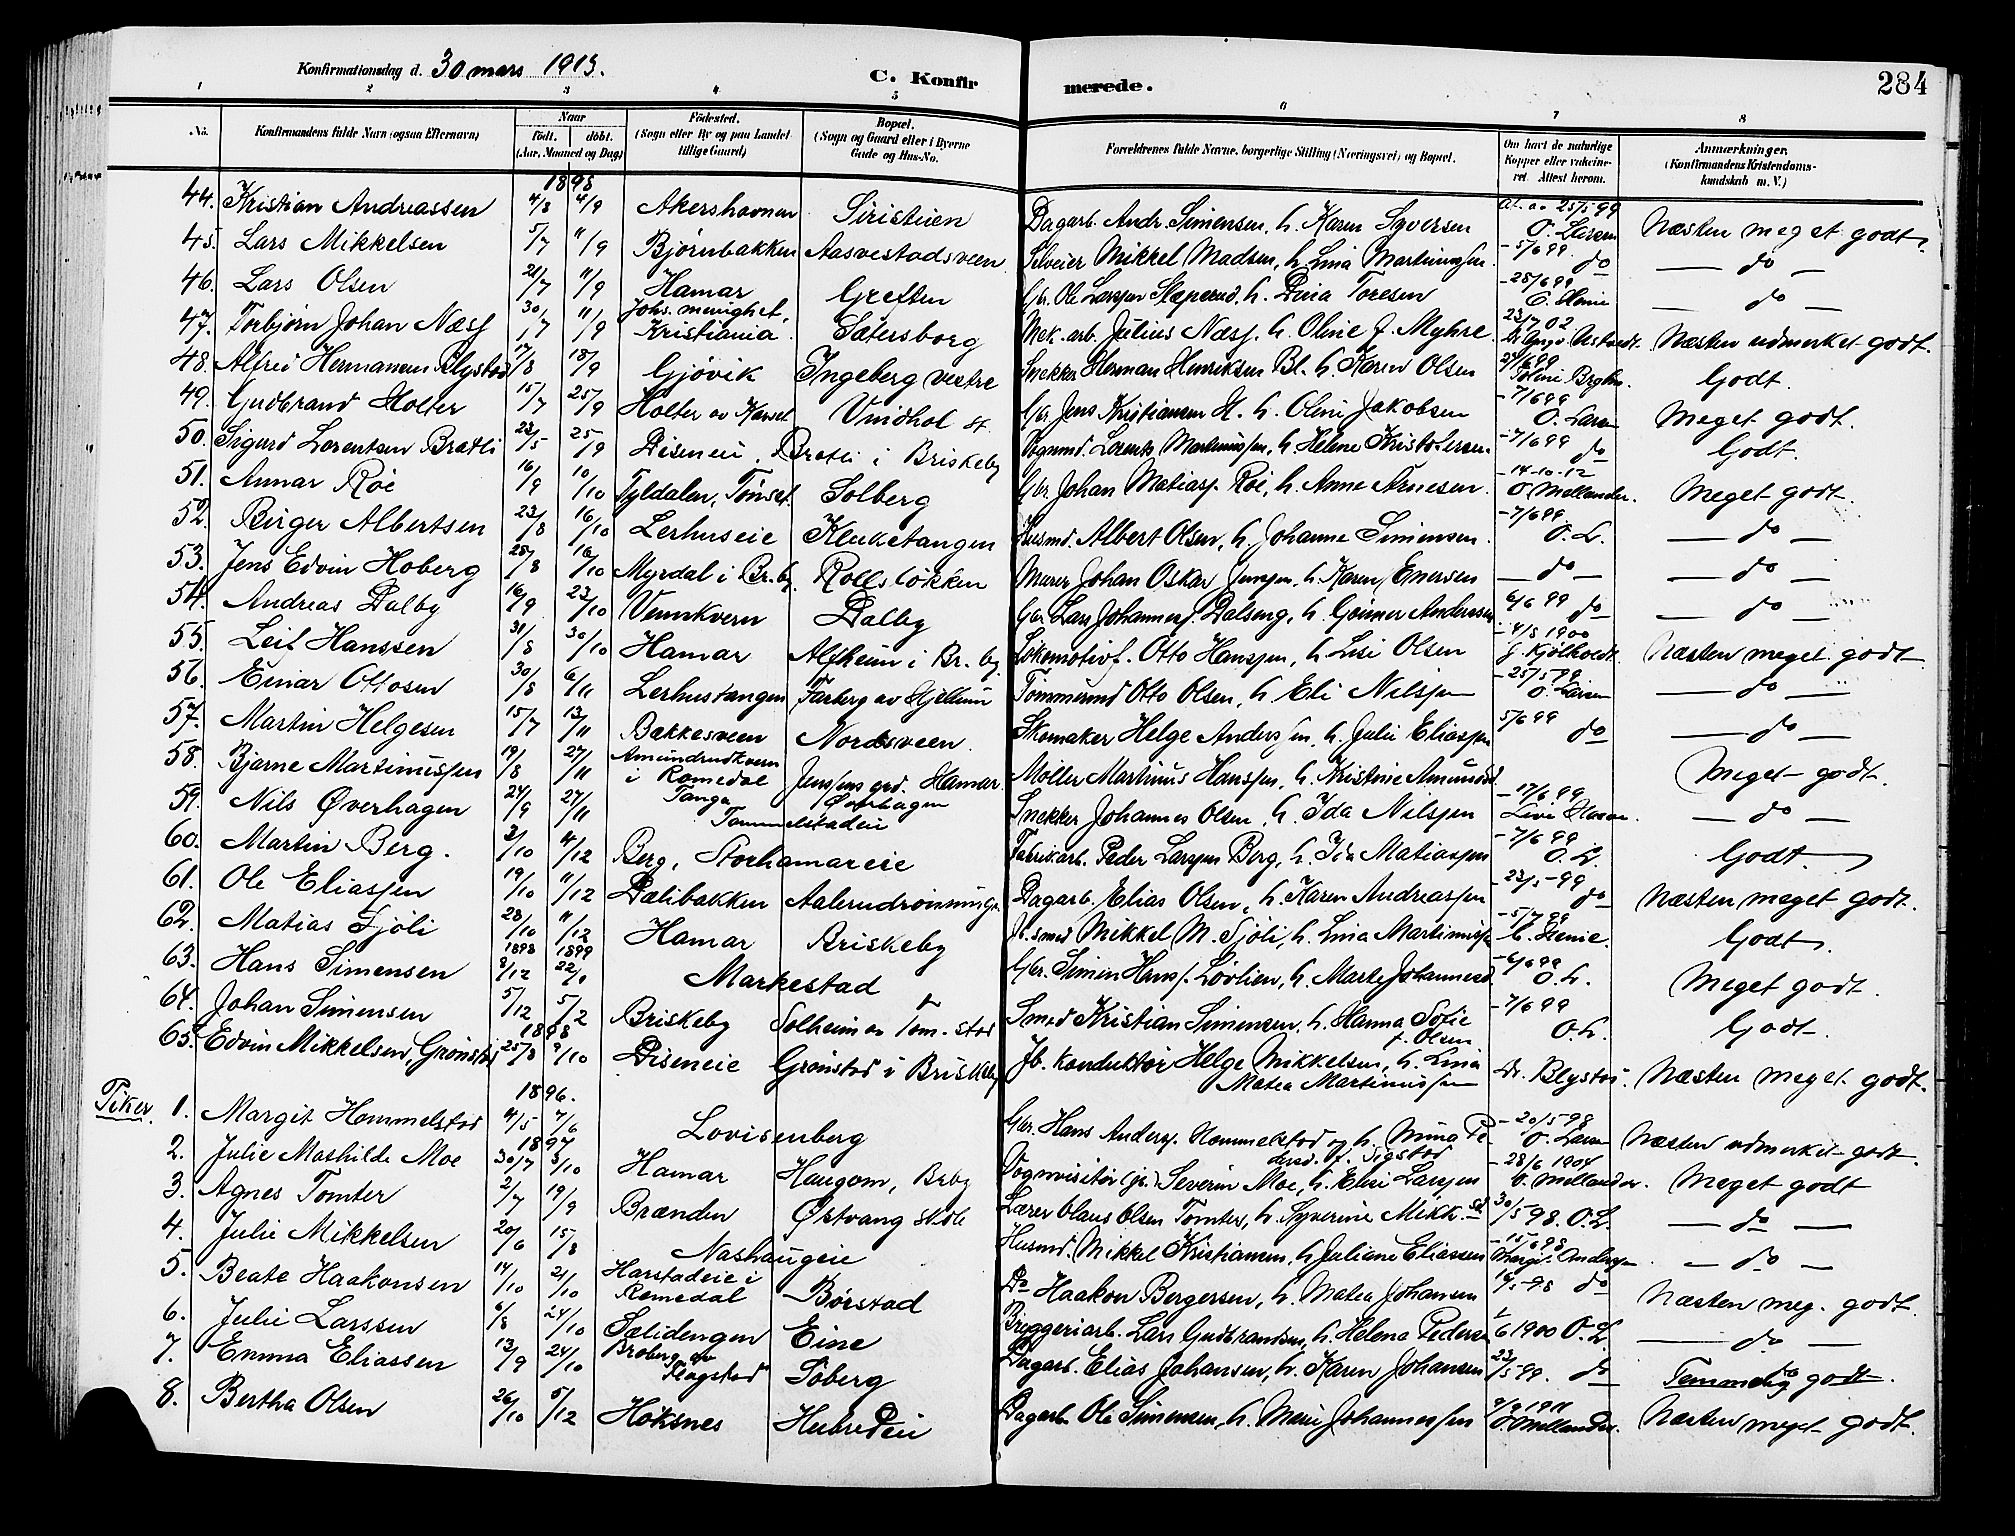 Konfirmationsdag d. 30 mars 1913.
C. Konfirmerede.
284
1 2 3 4 5 6 7 8
No. Konfirmandens fulde Navn (ogsaa Efternavn) Naar født. døbt. (Aar, Maaned og Dag) Fødested. (Sogn eller By og paa Landet tillige Gaard) Bopæl. (Sogn og Gaard eller i Byerne Gade og Hus-No. Forældrenes fulde Navne, borgerlige Stilling (Næringsvei) og Bopæl. Om havt de naturlige Kopper eller vakcineret. Attest herom. Anmærkninger. (Konfirmandens Kristendomskundskab m. V.)
1898
44. Kristian Andreassen 4/8 4/9 Akershavnen Siristuen Dagarb. Andr. Simensen, h. Karen Syversen 25/5 99 O. Larsen Næsten meget godt.
45. Lars Mikkelsen 5/7 11/9 Bjørnbakken Aasvestadsveen Selveier Mikkel Madsen, h. Lina Martinussen - 5/6 99 do — do —
46. Lars Olsen 21/7 11/9 Hamar Greften Gbr. Ole Larssen Slæperud, h. Dina Toresen - 28/6 99 — do —
47. Torbjørn Johan Næss 30/7 11/9 Johs. menighet, Kristiania Sætersborg Mek. arb. Julius Næss, h. Oline f. Myhre 23/7 02 Næsten udmerket godt.
48. Alfred Hermansen Blystad 17/8 18/9 Gjøvik Ingeberg vestre Snekker Herman Henriksen Bl. h. Karen Olsen 27/6 99 Godt.
49. Gudbrand Holter 15/7 25/9 Holter av Vindhol Gbr. Jens Kristiansen H. h. Oline Jakobsen - 7/6 99 O. Larsen Meget godt.
50. Sigurd Lorentsen Bratli 23/5 25/9 Diseneie Bratli i Briskeby Vognmd. Lorents Martinussen, h. Helene Kristofersen - 7/6 99 do Godt.
51. Annar Røe 16/9 10/10 Tyldalen, Tønset Solberg Gbr. Johan Matiass. Røe, h. Anne Arnesen - 14-10-12 O. Mellander. Meget godt.
52. Birger Albertsen 23/8 16/10 Lerhuseie Kluketangen Husmd. Albert Olsen, h. Johanne Simensen - 7/6 99. O. L. — do —
53. Jens Edvin Hoberg 28/8 16/10 Myrdal i Br. by. Rollsløkken Murer Johan Oskar Jenssen, h. Karen Enersen — do — — do —
54. Andreas Dalby 16/9 23/10 Vennkvern Dalby Gbr. Lars Johanness. Dalseng, h. Gunner Anderssen 6/6 99 do — do —
55. Leif Hanssen 31/8 30/10 Hamar Alfheim i Br. by. Lokomotivf. Otto Hanssen, h. Lise Olsen - 4/8 1900 Næsten meget godt
56. Einar Ottosen 30/8 6/11 Lerhustangen Farberg av Hjellum Tømmermd Otto Olsen, h. Eli Nilssen - 25/5 99 O. Larsen — do —
57. Martin Helgesen 15/7 13/11 Bækkesveen Nordsveen Skomaker Helge Anderssen, h. Julie Eliassen 5/6 99 do — do —
58. Bjarne Martinussen 19/8 27/11 Amundrudkvern i Romedal Jenssens grd. Hamar Møller Martinus Hanssen, h. Kristine Amundsd. Meget godt.
59. Nils Øverhagen 24/9 27/11 Tanga Øverhagen Tommelstadeie Snekker Johannes Olsen, h. Ida Nilssen - 17/6 99. — do —
60. Martin Berg. 3/10 4/12 Berg, Storhamareie Fabrikarb. Peder Larssen Berg, h. Ida Matiassen - 7/6 99 O. L. Godt
61. Ole Eliassen 19/10 11/12 Dælibakken Aalerudrønningen Dagarb. Elias Olsen, h. Karen Andreassen - 23/5 -99 do Næsten meget godt.
62. Matias Sjøli 23/10 11/12 Hamar Briskeby Jb. smed Mikkel M. Sjøli, h. Lina Martinussen - 5/7 99 Godt.
1898 1899
63. Hans Simensen 8/12 22/1 Markestad Gbr. Simen Hanss. Løvlien, h. Marte Johannesd. - 6/6 99 O. L. Meget godt.
64. Johan Simensen 5/12 5/2 Briskeby Solheim av Tom-stad Smed Kristian Simensen, h. Hanna Sofie f. Olsen - 7/6 99 O. L. Godt.
1898
65. Edvin Mikkelsen Grønstad 25/8 9/10 Diseneie Grønstad i Briskeby Jb. konduktør Helge Mikkelsen, h. Lina Matea Martinussen Dr. Blystad. Næsten meget godt.
Piker. 1896.
1. Margit Hommelstad 4/5 7/6 Lovisenberg Gbr. Hans Anderss. Hommelstad og h. Nina Pedersd. f. Sigstad - 20/5 -98 O. Larsen Næsten udmerket godt.
1897
2. Julie Mathilde Moe 30/7 3/10 Hamar Haugom, Brby Vognvisitør (jr.) Severin Moe, h. Elise Larssen - 28/6 1904 O. Mellander. Meget godt
3. Agnes Tomter 2/7 19/9 Brænden Østvang skole Lærer Olaus Olsen Tomter, h. Syverine Mikk.sd. 30/5 98. O. L. — do —
4. Julie Mikkelsen 20/6 15/8 Nashaugeie Husmd. Mikkel Kristiansen, h. Juliane Eliassen - 15/6 98 Margit Anderssen — do —
5. Beate Haakonsen 14/10 21/10 Harstadeie i Romedal Børstad Do Haakon Bergersen, h. Matea Johansen 16/5 -98 do Næsten meg. godt.
6. Julie Larssen 6/8 24/10 Sælidengen Eine Bryggeriarb. Lars Gudbrandsen, h. Helena Pedersen 1/6 1900 O. L. — do —
7. Emma Eliassen 12/9 24/10 Broberg av Flagstad Søberg Dagarb. Elias Johansen, h. Karen Johansen 23/5 99. do Temmelig godt.
8. Bertha Olsen 26/10 5/12 Høksnes Hubredeie Dagarb. Ole Simensen, h. Marie Johannessen 9/9 1911 O. Mellander. Næsten meget godt.